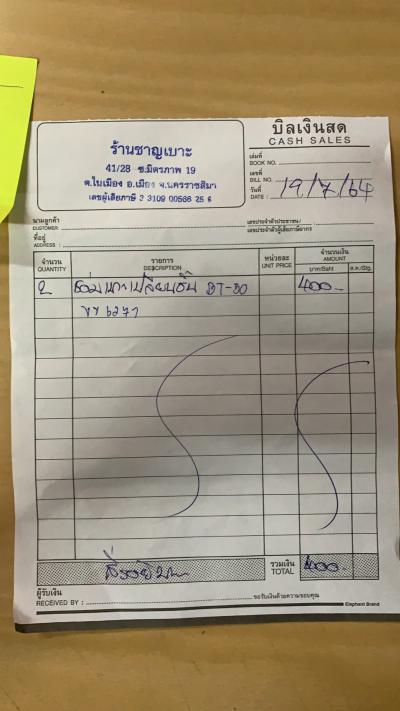 ร้านชาญเบาะ
41/28 ซ.มิตรภาพ 19
ต.ในเมือง อ.เมือง จ.นครราชสีมา
เลขผู้เสียภาษี 3 3109 00566 25 6
บิลเงินสด
CASH SALES
เล่มที่
BOOK NO.
เลขที่
BILL NO.
วันที่
DATE : 19/7/64
นามลูกค้า
CUSTOMER:
เลขประจำตัวประชาชน /
เลขประจำตัวผู้เสียภาษีอากร
ที่อยู่
ADDRESS :
จำนวน
QUANTITY
รายการ
DESCRIPTION
หน่วยละ
UNIT PRICE
จำนวนเงิน
AMOUNT
บาท/Baht
ส.ต./Stg.
2 ซ่อมเบาะเปลี่ยนชิ้น 400-
สี่ร้อยบาท
รวมเงิน
TOTAL
400-
ผู้รับเงิน
RECEIVED BY :
ขอรับเงินด้วยความขอบคุณ
Elephant Brand